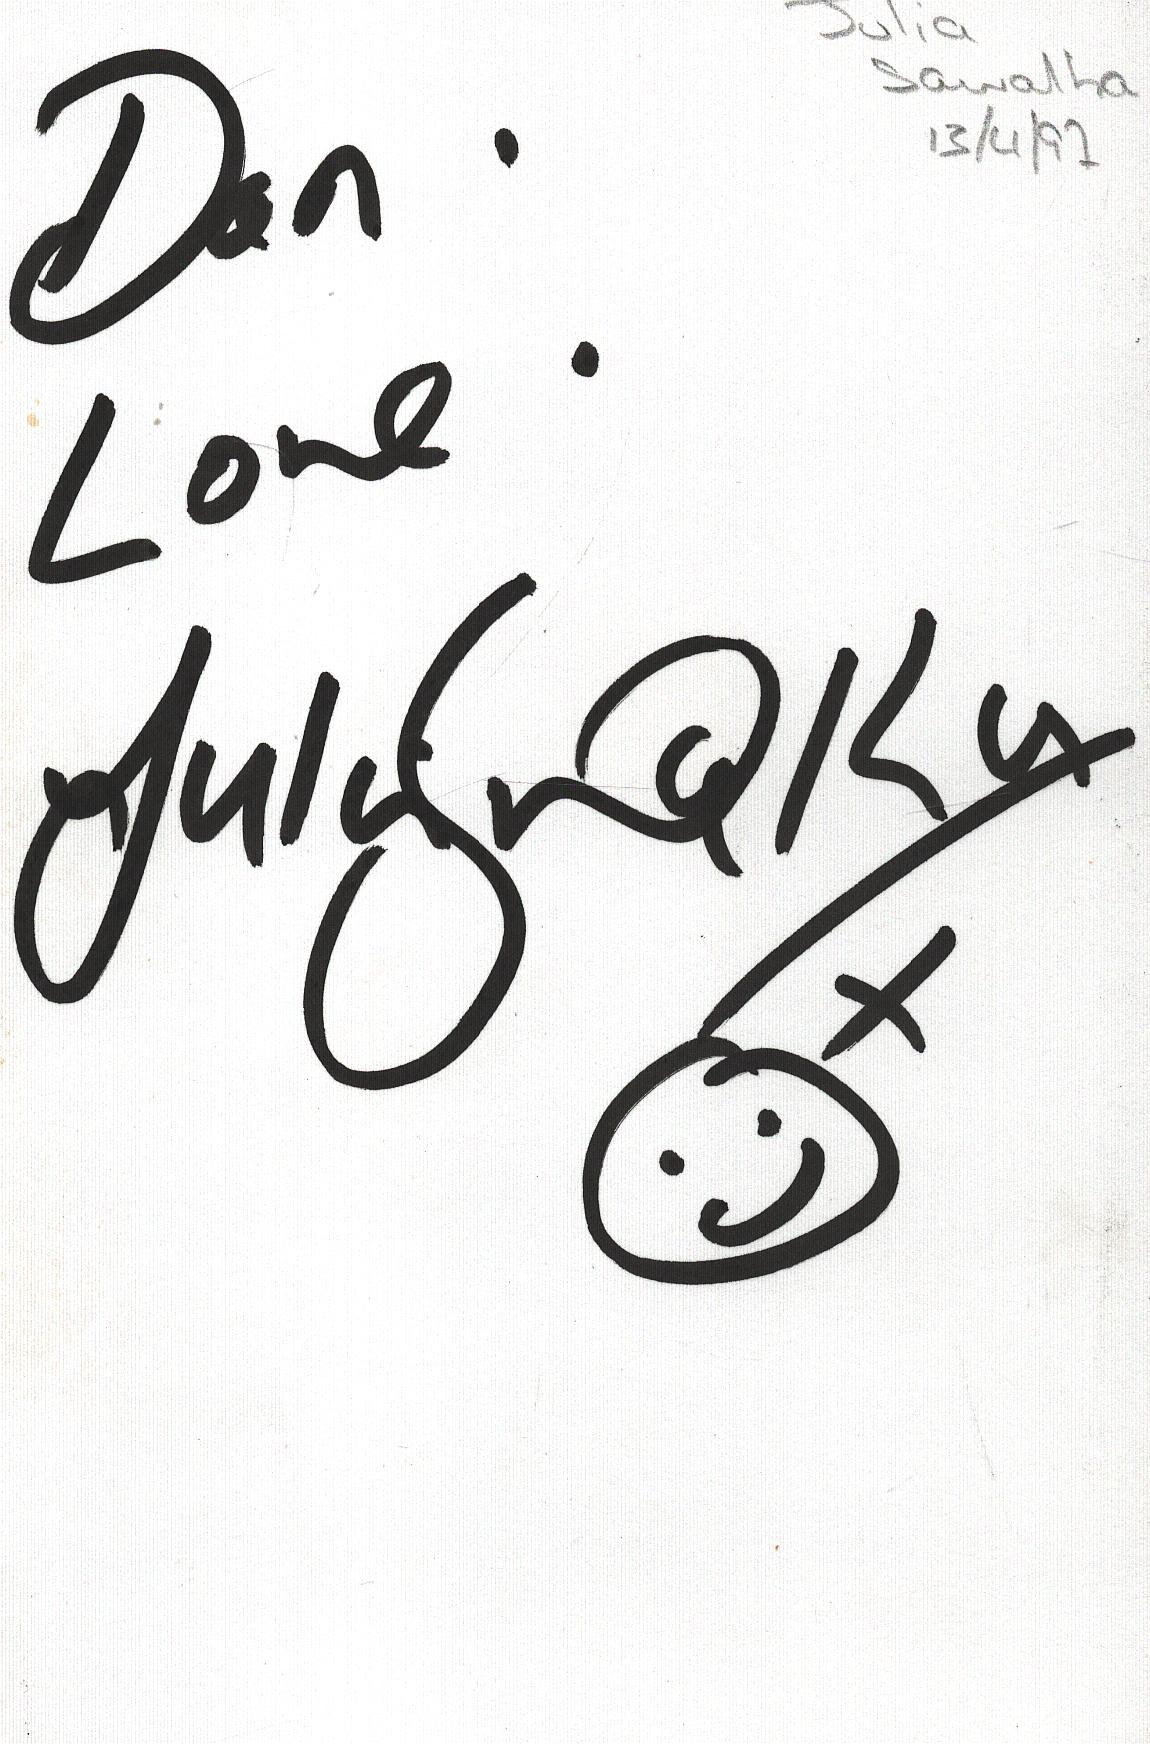 Julia
Sawalha
13/4/97
Dan.
Love.
Julia Sawalha
x